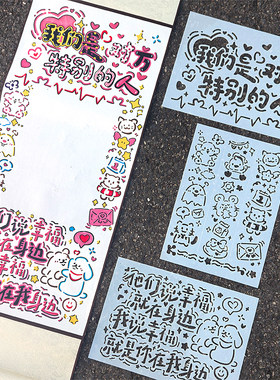 我们是对方
特别的人
他们说幸福
就在身边
我说幸福
就是你在我身边
我们是
特别的
他们说幸福
就在身边
我说幸福
就是你在我身边